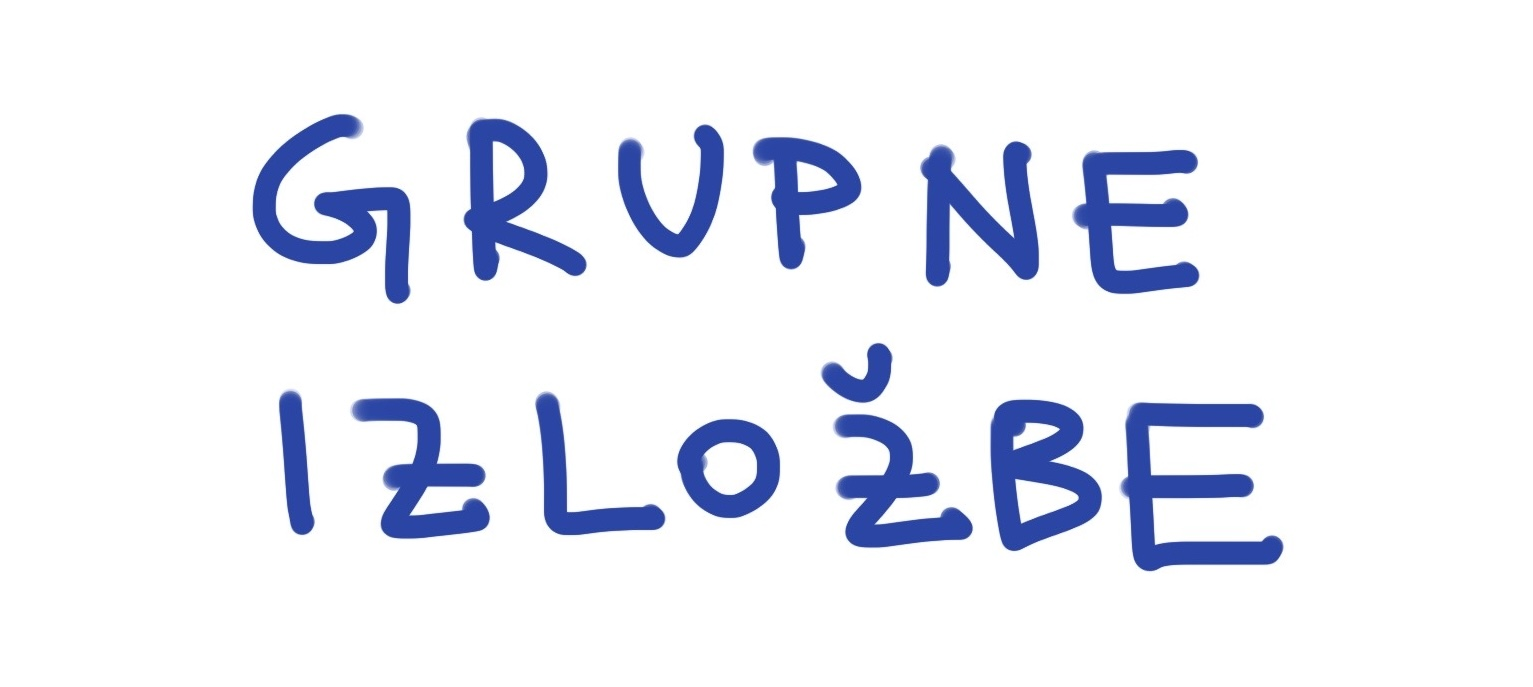 GRUPNE
IZLOŽBE